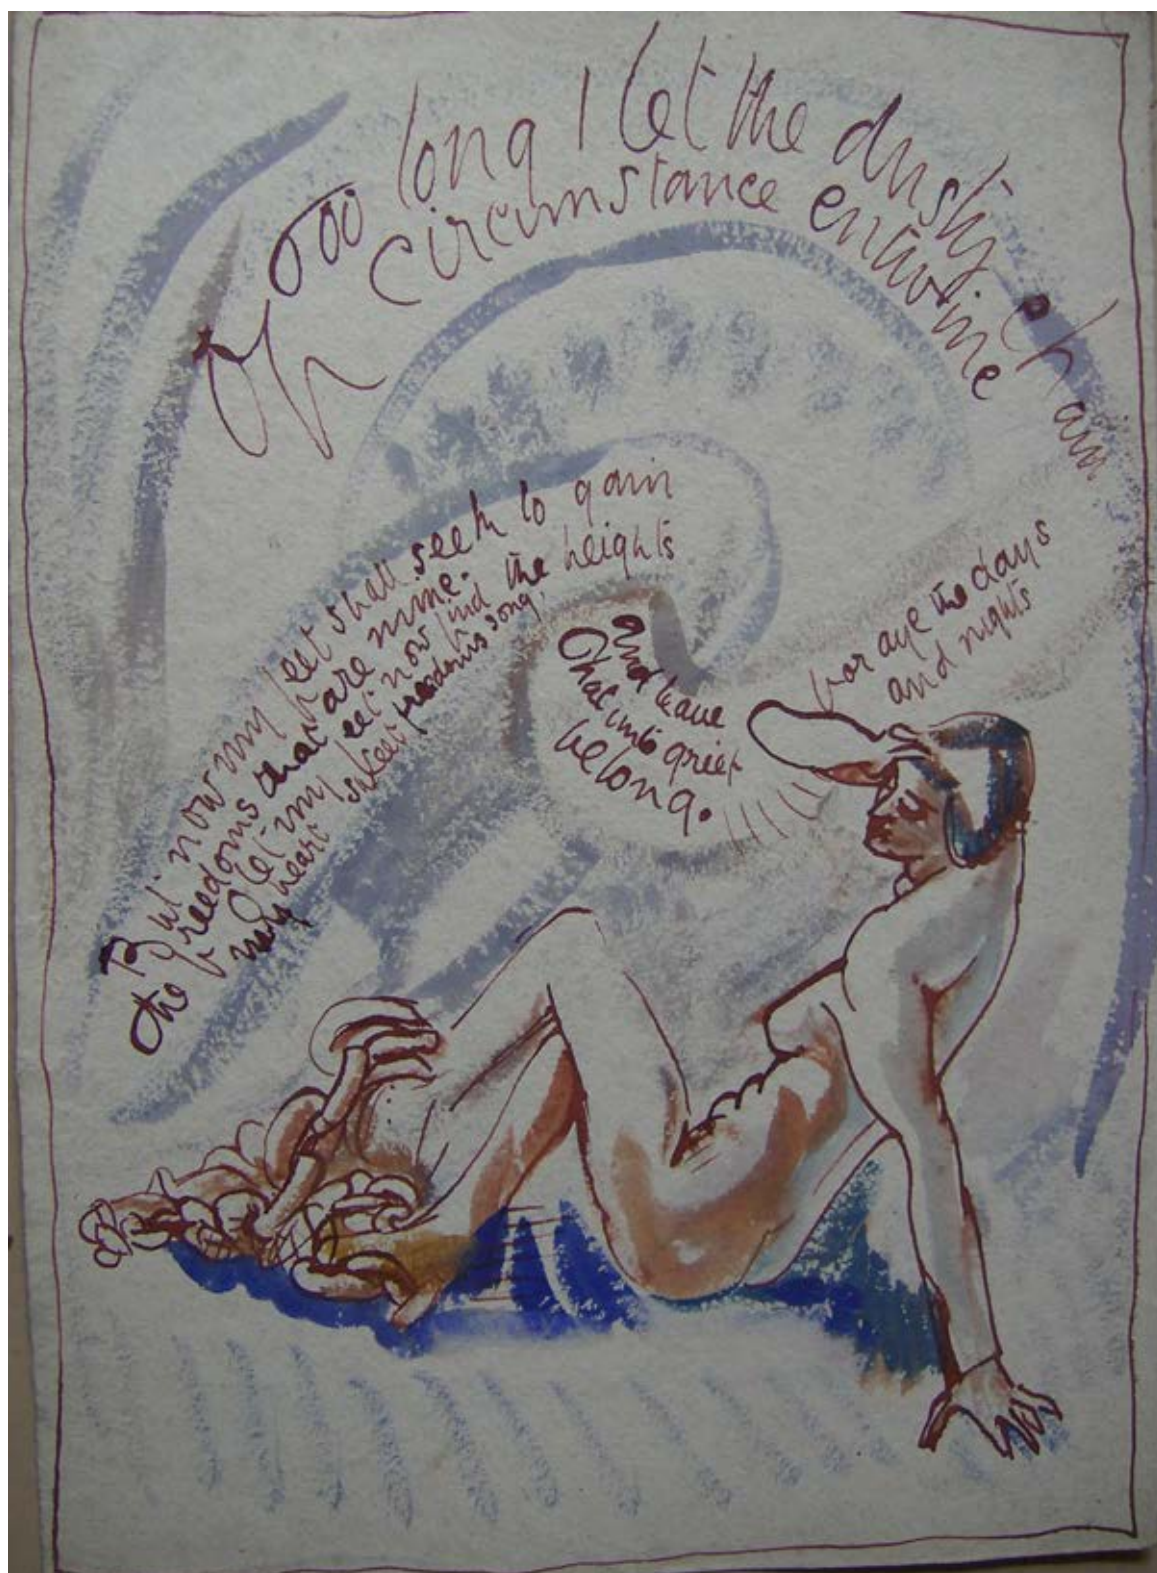 Too long I let the dusty chain
Of circumstance entwine
But now my feet shall seek to gain
The freedoms that are mine.
O let my feet now find the heights
my heart sweet freedoms song,
and leave
for aye the days
and nights
That unto grief
belong.